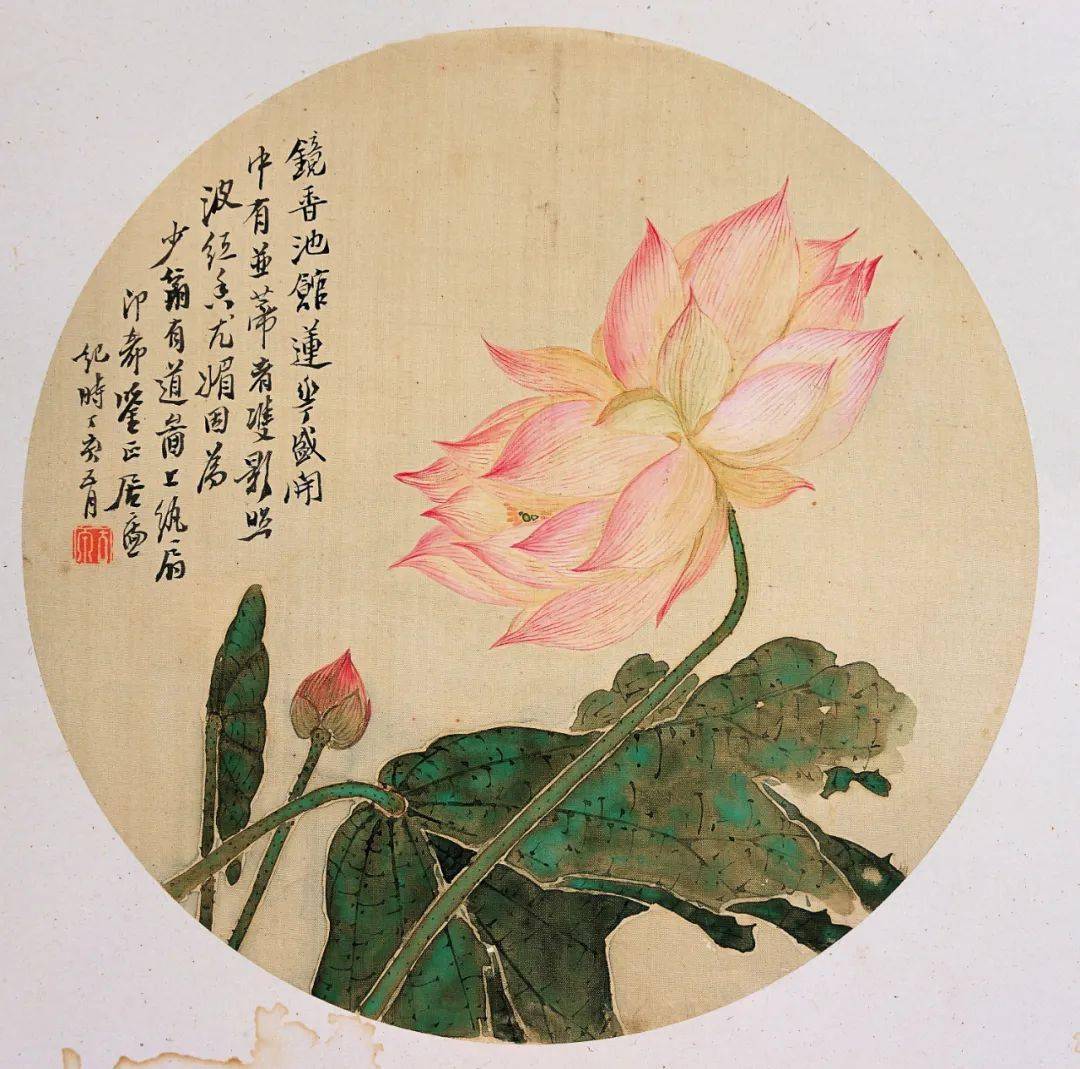 鏡香池館蓮花盛開
中有並蒂者雙影照
波紅香尤媚因為
少翁有道兄上紈扇
印希鑒正居廉
紀時丁亥五月